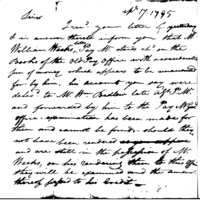 Apl. 17. 1795
Sir
I recd. your letter of yesterday
& in answer thereto inform you that Mr.
William Weeks late Pay M. stands on the
Books of the Old Pay Office with a considerable
sum of money which appears to be unaccounted
for by him the account you say were
deliver'd to Mr. Wm. Bedlow late P. M.
and forwarded by him to the Pay M. Genl.
Office examination has been made for
them and cannot be found. should they
not have been
and are still in the possession of Mr.
Weeks, on his rendering them to this Office
they will be examined and the amount
thereof passed to his Credit